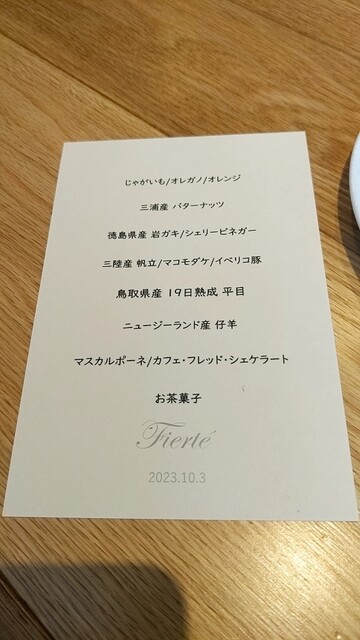 じゃがいも/オレガノ/オレンジ
三浦産 バターナッツ
徳島県産 岩ガキ/シェリービネガー
三陸産 帆立/マコモダケ/イベリコ豚
鳥取県産 19日熟成 平目
ニュージーランド産 仔羊
マスカルポーネ/カフェ・フレッド・シェケラート
お茶菓子
Fierté
2023.10.3